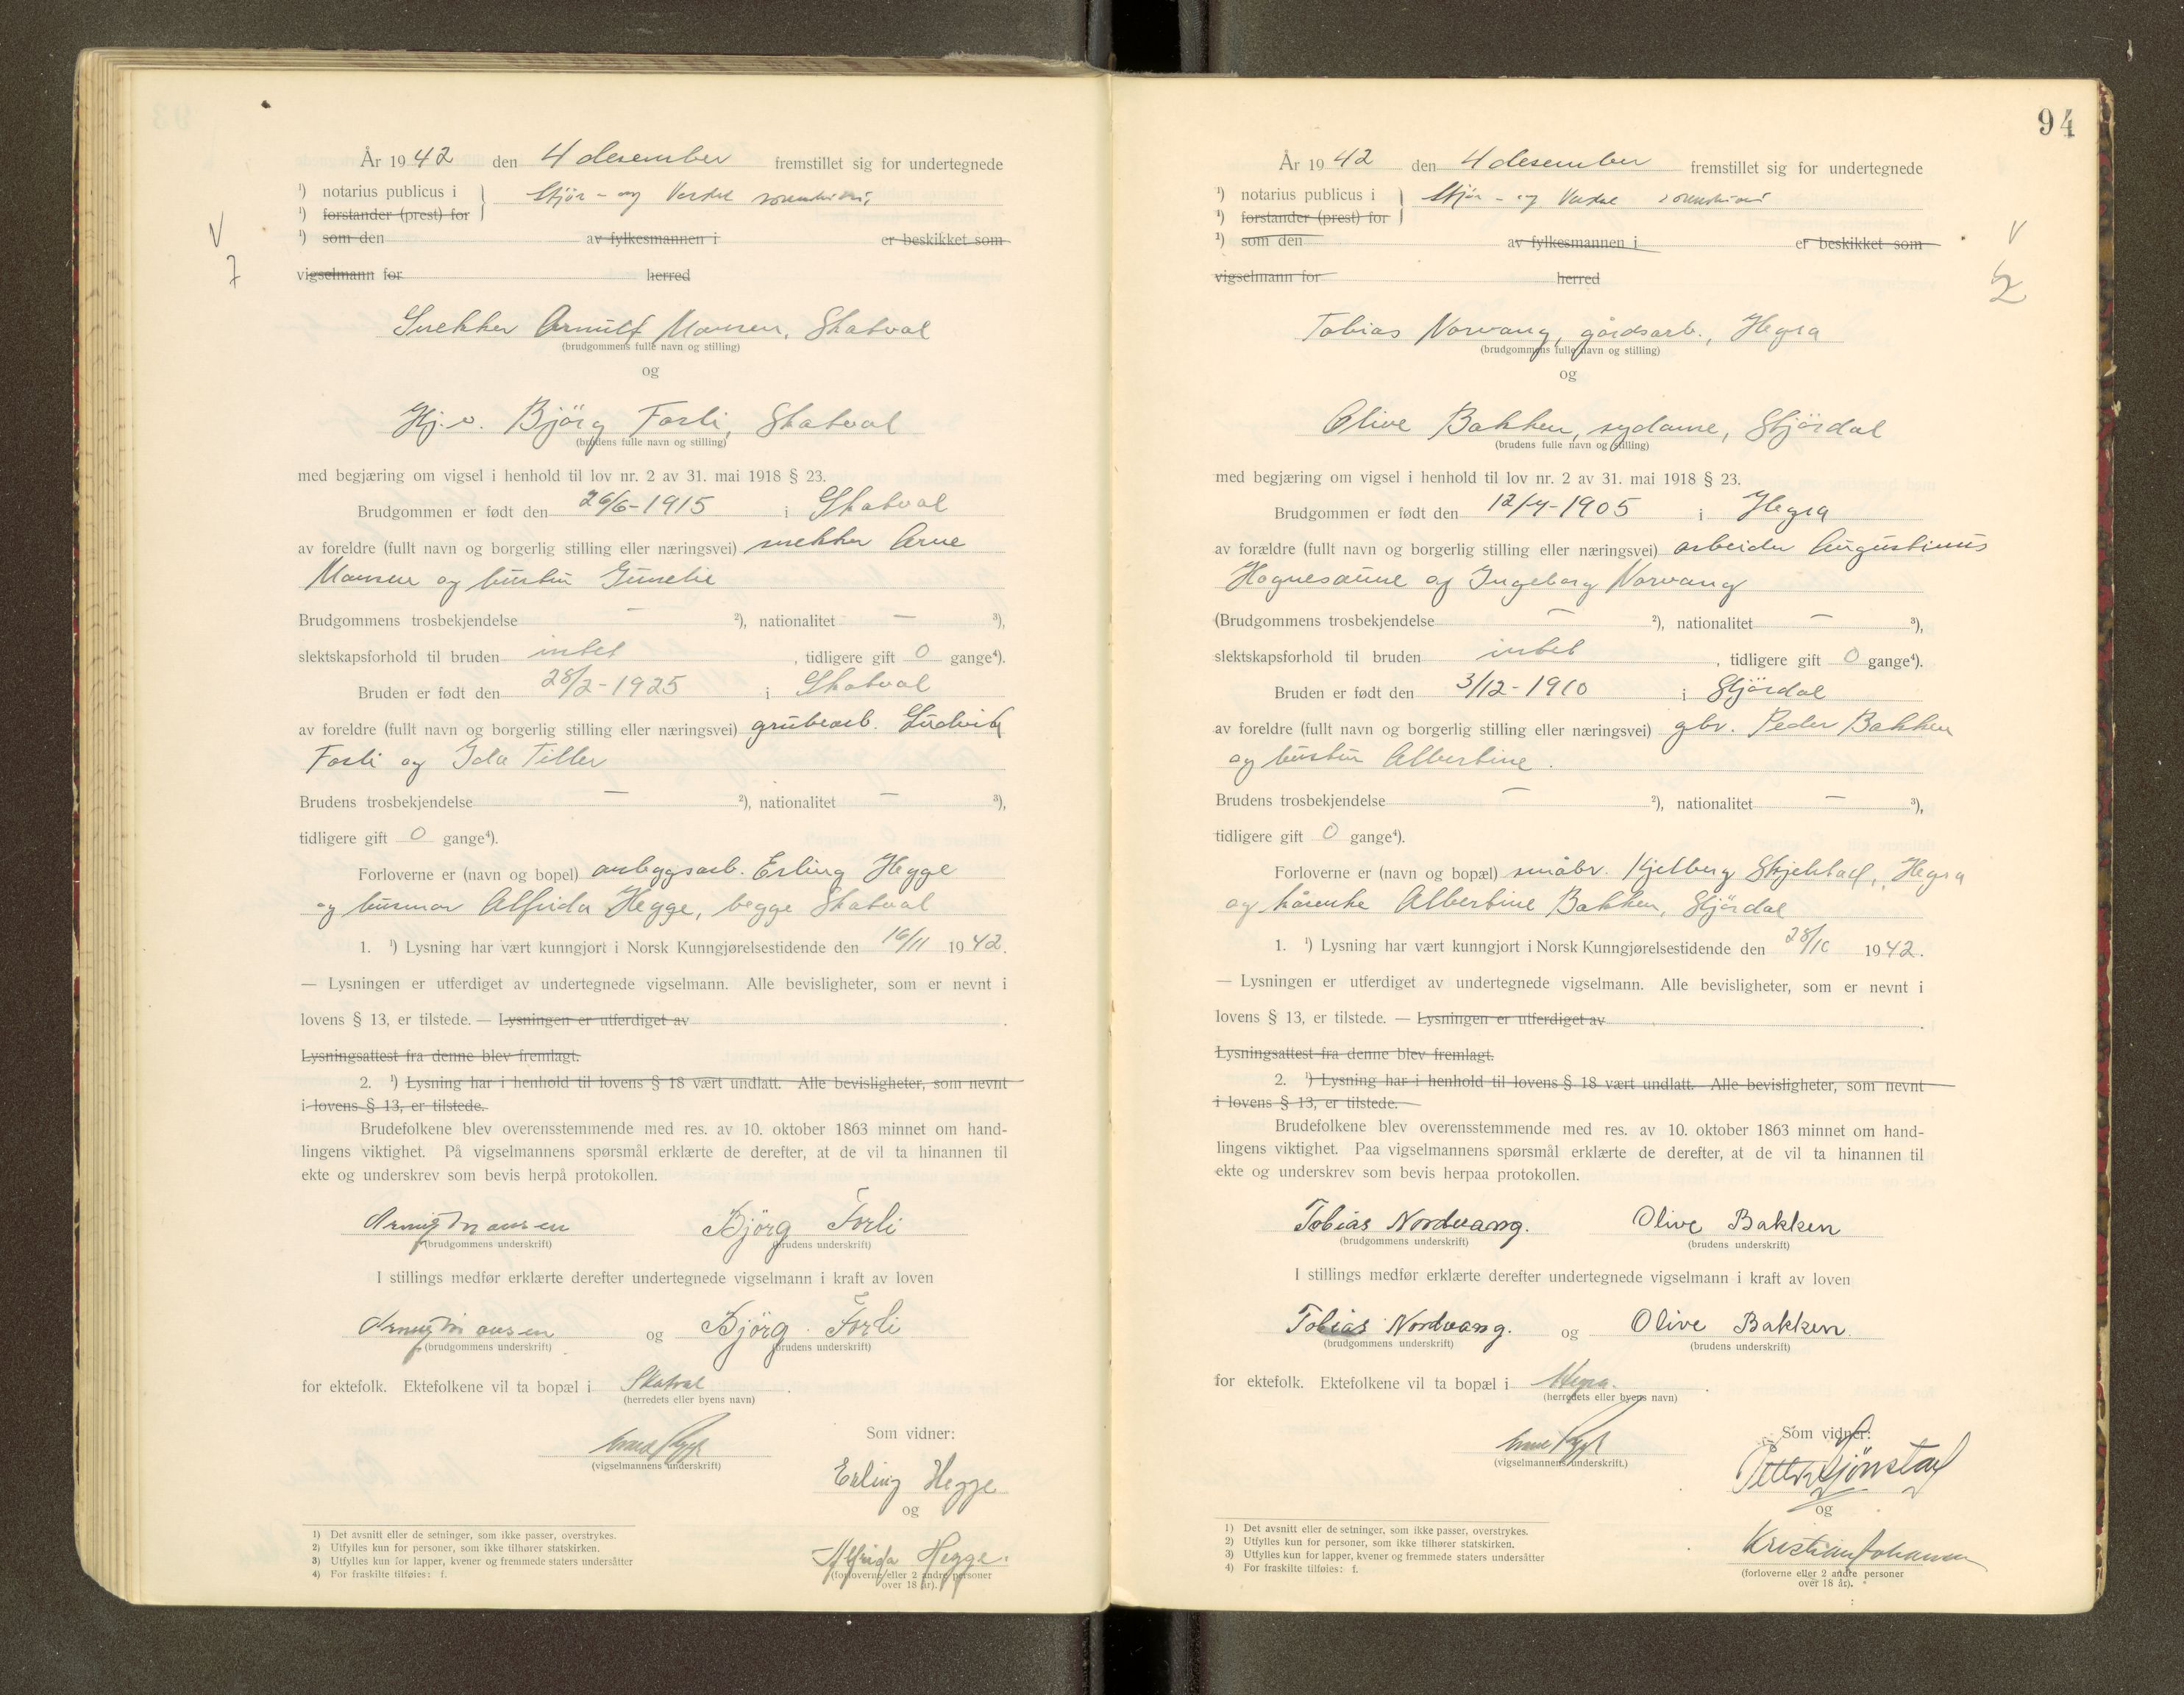 År 1942 den 4 desember fremstillet sig for undertegnede
¹) notarius publicus i } Stjør- og Verdal sorenskriveri,
¹) forstander (prest) for
¹) som den av fylkesmannen i er beskikket som
vigselmann for herred
V
7
Snekker Arnulf Mausen, Skatval
(brudgommens fulle navn og stilling)
og
Hj.v. Bjørg Forli, Skatval
(brudens fulle navn og stilling)
med begjæring om vigsel i henhold til lov nr. 2 av 31. mai 1918 § 23.
Brudgommen er født den 26/6-1915 i Skatval
av foreldre (fullt navn og borgerlig stilling eller næringsvei) snekker Arne
Mausen og hustru Gunelie
Brudgommens trosbekjendelse – ²), nationalitet – ³),
slektskapsforhold til bruden intet, tidligere gift 0 gange⁴).
Bruden er født den 28/2-1925 i Skatval
av foreldre (fullt navn og borgerlig stilling eller næringsvei) grubearb. Ludvik
Forli og Ida Tiller
Brudens trosbekjendelse – ²), nationalitet – ³),
tidligere gift 0 gange⁴).
Forloverne er (navn og bopel) anleggsarb. Erling Hegge
og husmor Alfrida Hegge, begge Skatval
1. ¹) Lysning har vært kunngjort i Norsk Kunngjørelsestidende den 16/11 1942.
— Lysningen er utferdiget av undertegnede vigselmann. Alle bevisligheter, som er nevnt i
lovens § 13, er tilstede. — Lysningen er utferdiget av
Lysningsattest fra denne blev fremlagt.
2. ¹) Lysning har i henhold til lovens § 18 vært undlatt. Alle bevisligheter, som nevnt
i lovens § 13, er tilstede.
Brudefolkene blev overensstemmende med res. av 10. oktober 1863 minnet om hand-
lingens viktighet. På vigselmannens spørsmål erklærte de derefter, at de vil ta hinannen til
ekte og underskrev som bevis herpå protokollen.
Arnulf Mausen Bjørg Forli
(brudgommens underskrift) (brudens underskrift)
I stillings medfør erklærte derefter undertegnede vigselmann i kraft av loven
Arnulf Mausen og Bjørg Forli
(brudgommens underskrift) (brudens underskrift)
for ektefolk. Ektefolkene vil ta bopæl i Skatval.
(herredets eller byens navn)
Som vidner:
(vigselmannens underskrift)
Erling Hegge
og
Alfrida Hegge.
(forloverne eller 2 andre personer
over 18 år).
1) Det avsnitt eller de setninger, som ikke passer, overstrykes.
2) Utfylles kun for personer, som ikke tilhører statskirken.
3) Utfylles kun for lapper, kvener og fremmede staters undersåtter
4) For fraskilte tilføies: f.
94
År 1942 den 4 desember fremstillet sig for undertegnede
¹) notarius publicus i } Stjør- og Verdal sorenskriveri
¹) forstander (prest) for
¹) som den av fylkesmannen i er beskikket som
vigselmann for herred
V
2
Tobias Norvang, gårdsarb., Hegra
(brudgommens fulle navn og stilling)
og
Olive Bakken, sydame, Stjørdal
(brudens fulle navn og stilling)
med begjæring om vigsel i henhold til lov nr. 2 av 31. mai 1918 § 23.
Brudgommen er født den 12/4-1905 i Hegra
av forældre (fullt navn og borgerlig stilling eller næringsvei) arbeider Augustinus
Hognesaune og Ingeborg Norvang
(Brudgommens trosbekjendelse – ²), nationalitet – ³),
slektskapsforhold til bruden intet, tidligere gift 0 gange⁴).
Bruden er født den 3/12-1910 i Stjørdal
av foreldre (fullt navn og borgerlig stilling eller næringsvei) gbr. Peder Bakken
og hustru Albertine.
Brudens trosbekjendelse – ²), nationalitet – ³),
tidligere gift 0 gange⁴).
Forloverne er (navn og bopæl) småbr. Kjelberg Skjelstad, Hegra
og kårenke Albertine Bakken, Stjørdal
1. ¹) Lysning har vært kunngjort i Norsk Kunngjørelsestidende den 28/10 1942.
— Lysningen er utferdiget av undertegnede vigselmann. Alle bevisligheter, som er nevnt i
lovens § 13, er tilstede. — Lysningen er utferdiget av
Lysningsattest fra denne blev fremlagt.
2. ¹) Lysning har i henhold til lovens § 18 vært undlatt. Alle bevisligheter, som nevnt
i lovens § 13, er tilstede.
Brudefolkene blev overensstemmende med res. av 10. oktober 1863 minnet om hand-
lingens viktighet. Paa vigselmannens spørsmål erklærte de derefter, at de vil ta hinannen til
ekte og underskrev som bevis herpaa protokollen.
Tobias Nordvang. Olive Bakken
(brudgommens underskrift) (brudens underskrift)
I stillings medfør erklærte derefter undertegnede vigselmann i kraft av loven
Tobias Nordvang. og Olive Bakken.
(brudgommens underskrift) (brudens underskrift)
for ektefolk. Ektefolkene vil ta bopæl i Hegra.
(herredets eller byens navn)
Som vidner:
(vigselmannens underskrift.)
Petter Sjønstad
og
Kristian Johansen
(forloverne eller 2 andre personer
over 18 år).
1) Det avsnitt eller de setninger, som ikke passer, overstrykes.
2) Utfylles kun for personer, som ikke tilhører statskirken.
3) Utfylles kun for lapper, kvener og fremmede staters undersåtter
4) For fraskilte tilføies: f.